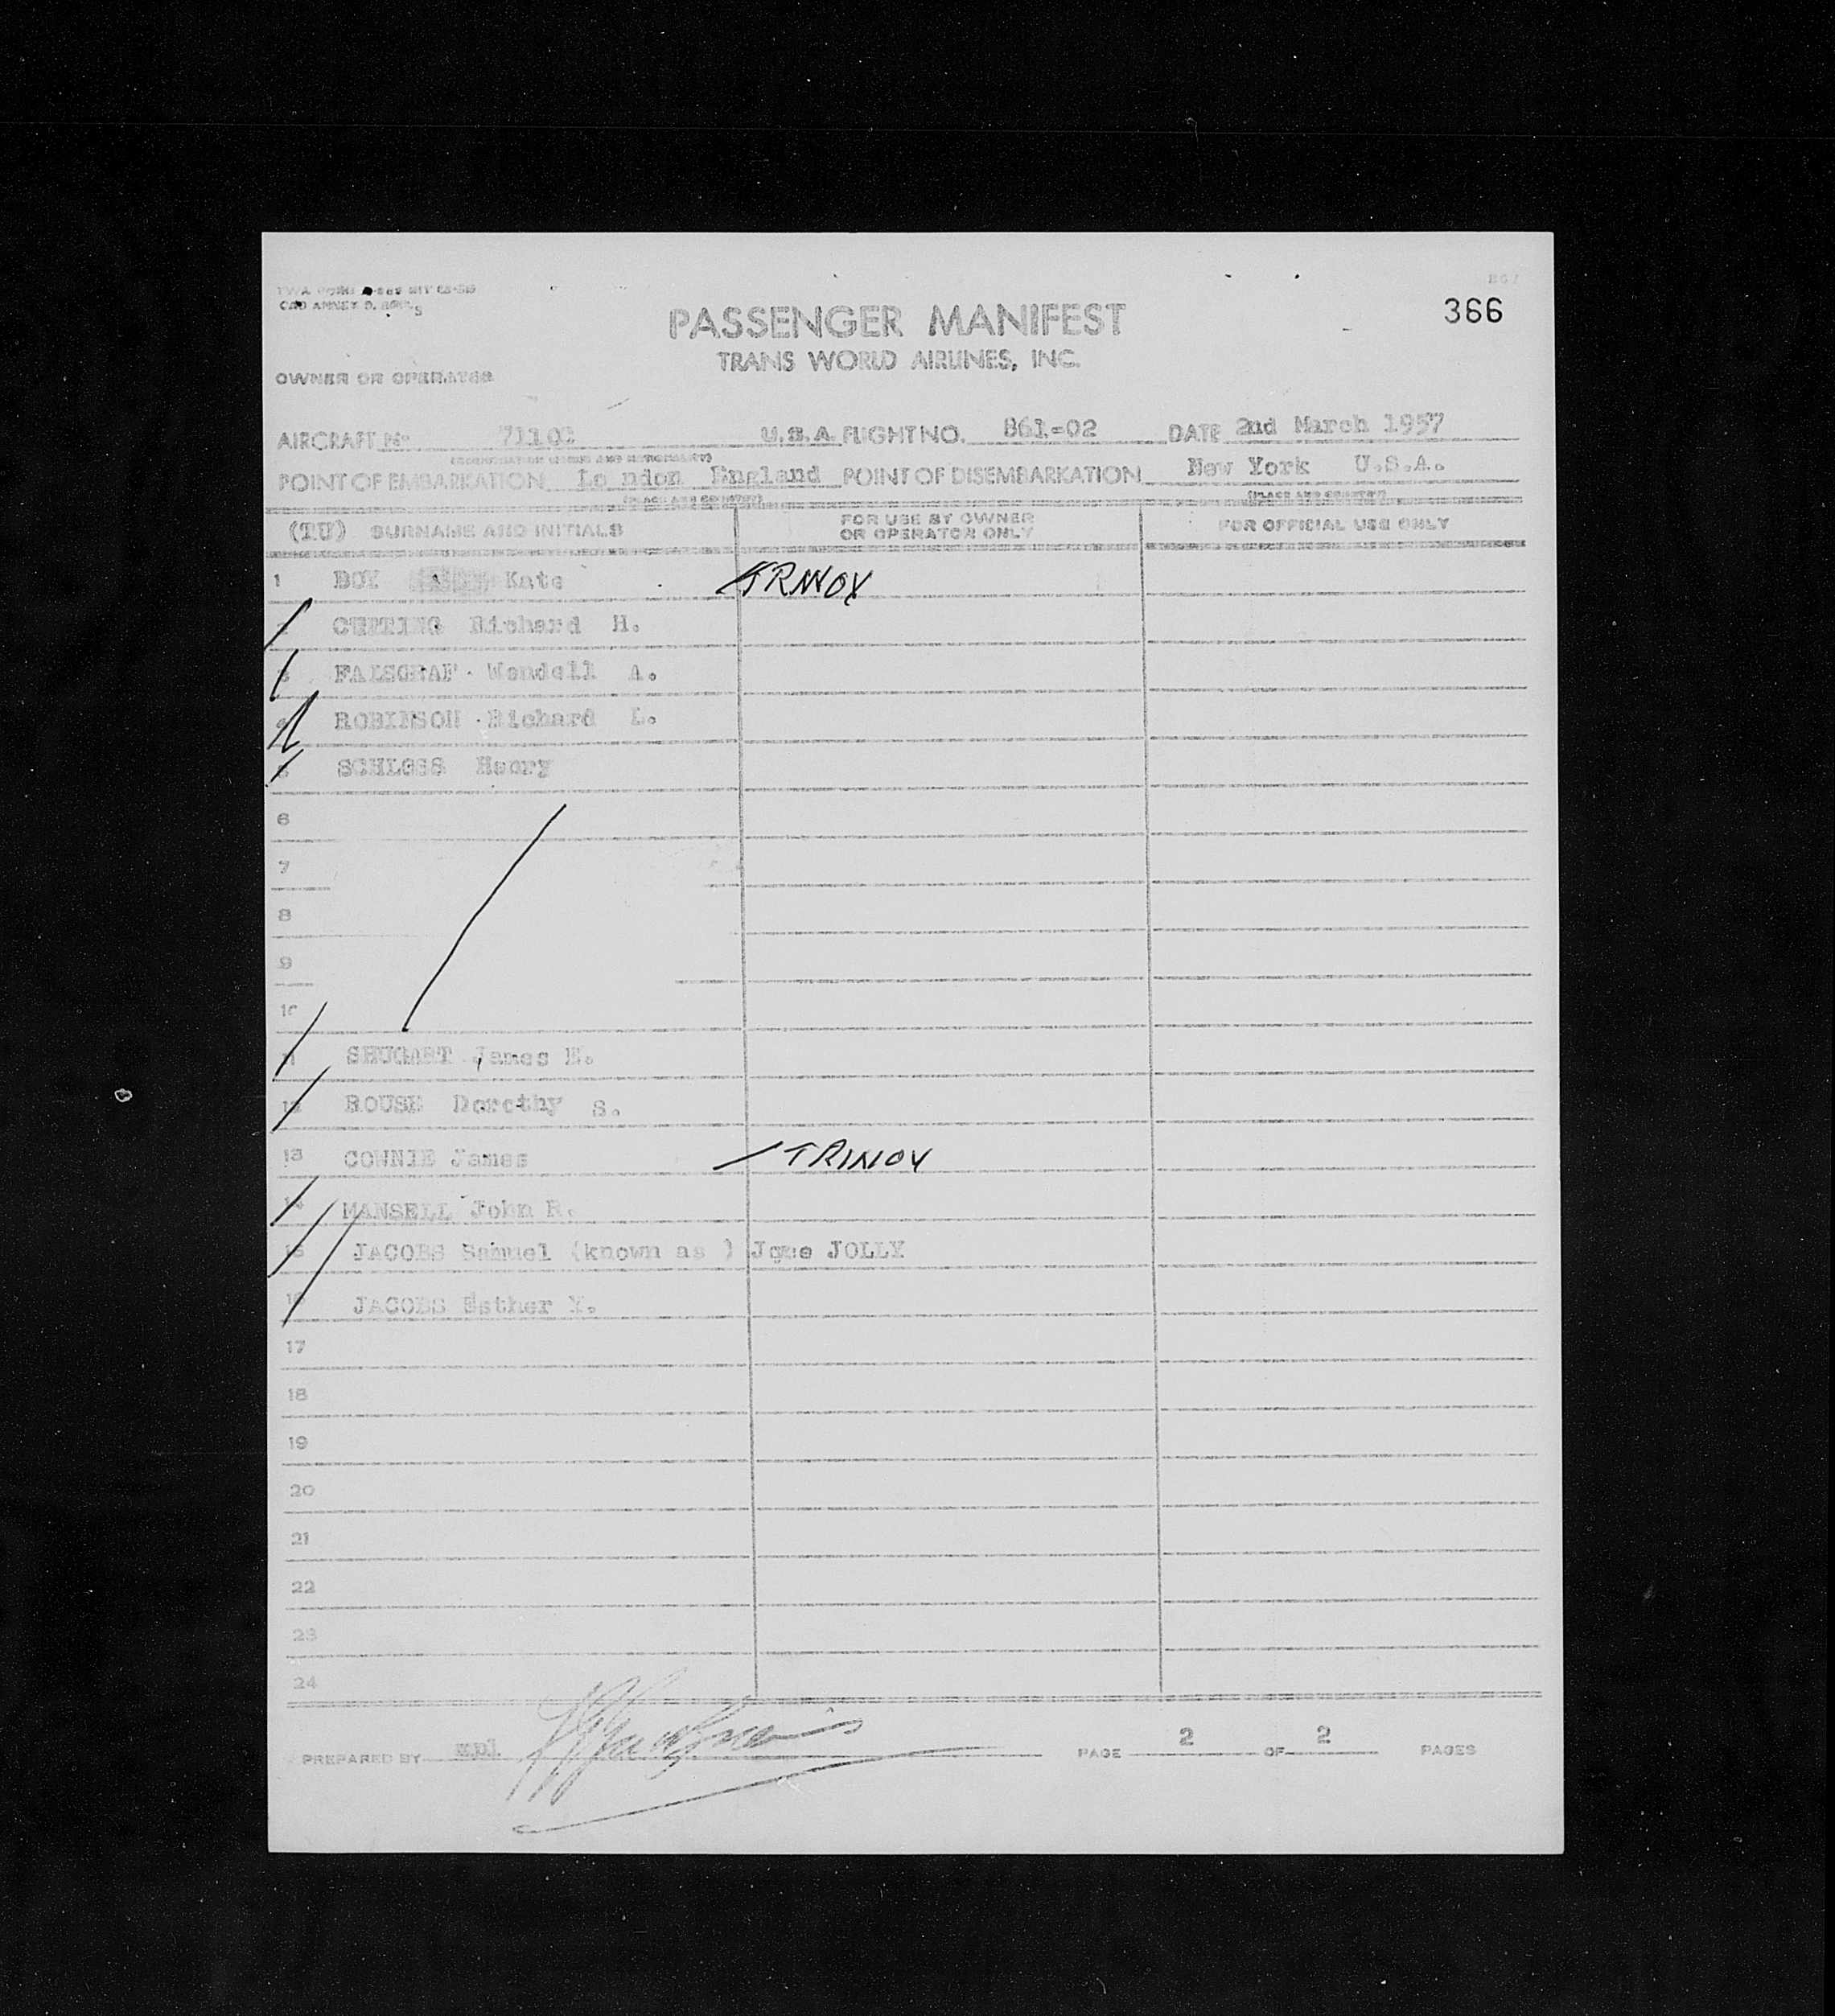 366
PASSENGER MANIFEST
TRANS WORLD AIRLINES, INC.
OWNER OR OPERATOR
AIRCRAFT No U.S.A. FLIGHT NO. 861-02 DATE 2nd March 1957
POINT OF EMBARKATION Lo ndon England POINT OF DISEMBARKATION New York U.S.A.
(PLACE AND COUNTRY) (PLACE AND COUNTRY)
(TU) SURNAME AND INITIALS FOR USE BY OWNER OR OPERATOR ONLY FOR OFFICIAL USE ONLY
1 Kate
2 Richard H.
3 FALSGRAF Wendell A.
4 ROBINSON Richard L.
5 SCHLOSS Henry
6
7
8
9
10
11 SHUGART James E.
12 ROUSE Dorothy S.
13 CONNIE James
14 MANSELL John R.
15 JACOBS Samuel (known as ) JOLLY
16 JACOBS Esther Y.
17
18
19
20
21
22
23
24
PREPARED BY mpl PAGE 2 OF 2 PAGES